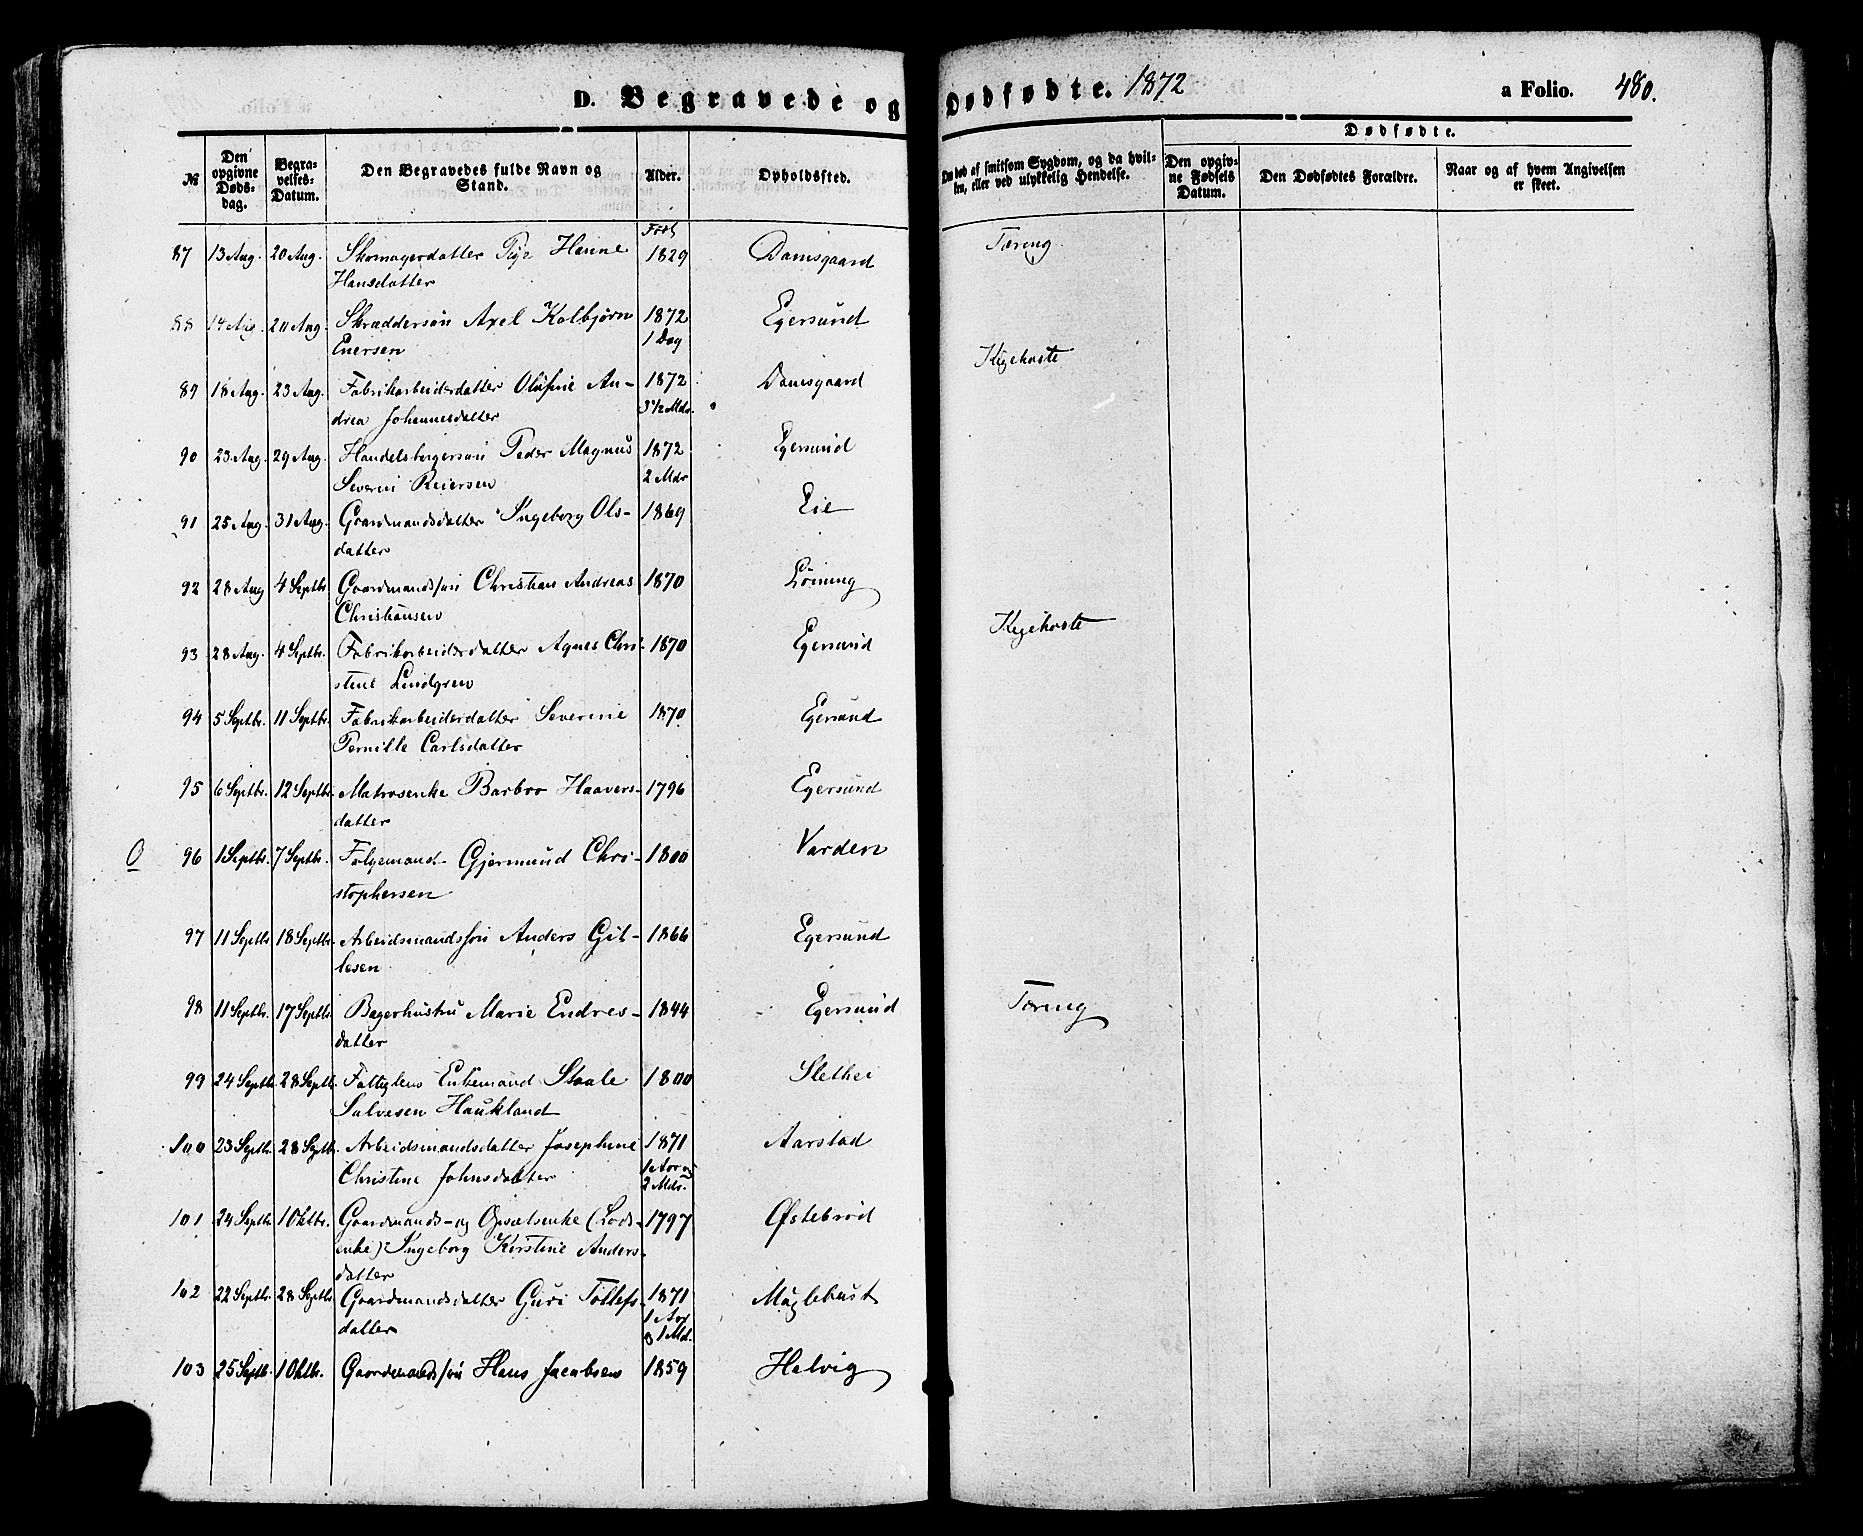 D. Begravede og Dødfødte. 1872 a Folio. 480.
Dødfødte.
№ Den opgivne Døds-dag. Begra-velses-Datum. Den Begravedes fulde Navn og Stand. Alder. Opholdssted. Om død af smitsom Sygdom, og da hvil-ken, eller ved ulykkelig Hendelse. Den opgiv-ne Fødsels Datum. Den Dødfødtes Forældre. Naar og af hvem Angivelsen er skeet.
Født
87 13 Aug. 20 Aug. Skomagerdatter Pige Hanne 1829 Damsgaard Tæring
Hansdatter
88 14 Aug. 20 Aug. Skræddersøn Axel Kolbjørn 1872 Egersund
Enersen 1 Dag
89 18 Aug. 23 Aug. Fabrikarbeiderdatter Olufine An- 1872 Damsgaard Kighoste
drea Johannesdatter 3½ Mdr.
90 23 Aug. 29 Aug. Handelsborgersøn Peder Magnus 1872 Egersund
Severin Reiersen 2 Mdr
91 25 Aug. 31 Aug. Gaardmandsdatter Ingeborg Ols- 1869 Eie
datter
92 28 Aug 4 Septbr. Gaardmandssøn Christian Andreas 1870 Løining
Christiansen
93 28 Aug. 4 Septbr. Fabrikarbeiderdatter Agnes Chri- 1870 Egersund Kighoste
stene Lindgren
94 5 Septbr. 11 Septbr. Fabrikarbeiderdatter Severine 1870 Egersund
Pernille Carlsdatter
95 6 Septbr. 12 Septbr. Matrosenke Barbro Haavers- 1796 Egersund
datter
O 96 1 Septbr. 7 Septbr. Følgemand Gjermund Chri- 1800 Varden
stophersen
97 11 Septbr. 18 Septbr. Arbeidsmandssøn Anders Git- 1866 Egersund
lesen
98 11 Septbr. 17 Septbr. Bagerhustru Marie Endres- 1844 Egersund Tæring
datter
99 24 Septbr. 28 Septbr. Fattiglems Enkemand Staale 1800 Slethei
Salvesen Haukland
100 23 Septbr. 28 Septbr. Arbeidsmandsdatter Josephine 1871 Aarstad
Christine Johnsdatter 1 Aar og
2 Mdr.
101 24 Septbr 1 Oktbr. Gaardmands- og Opsætsenke (Lods- 1797 Østebrød
enke) Ingeborg Kirstine Anders-
datter
102 22 Septbr. 28 Septbr. Gaardmandsdatter Guri Tollefs- 1871 Møglebust
datter 1 Aar
og 1 Md.
103 25 Septbr. 1 Oktbr. Gaardmandssøn Hans Jacobsen 1859 Halvig